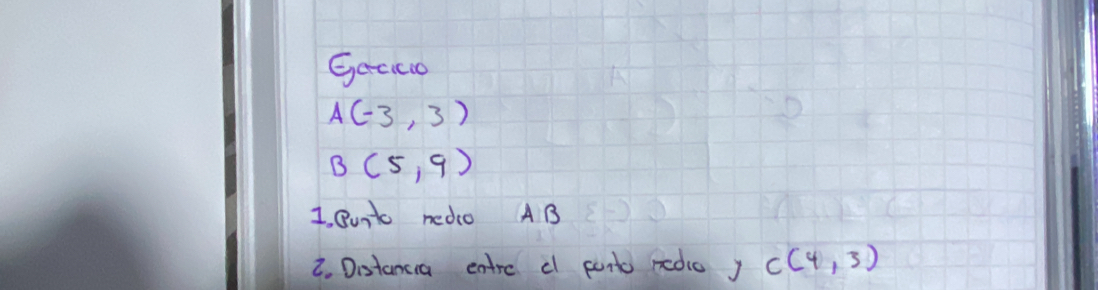 Ejercicio
A(-3, 3)
B (5, 9)
1. Punto medio AB
2. Distancia entre el punto medio y C(4, 3)